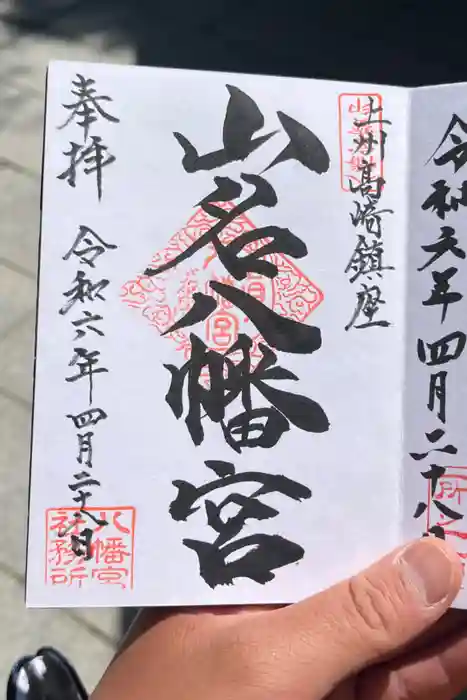 令和六年四月二十八日
上州高崎鎮座
山名八幡宮
奉拝
令和六年四月二十八日
八幡宮
社務所